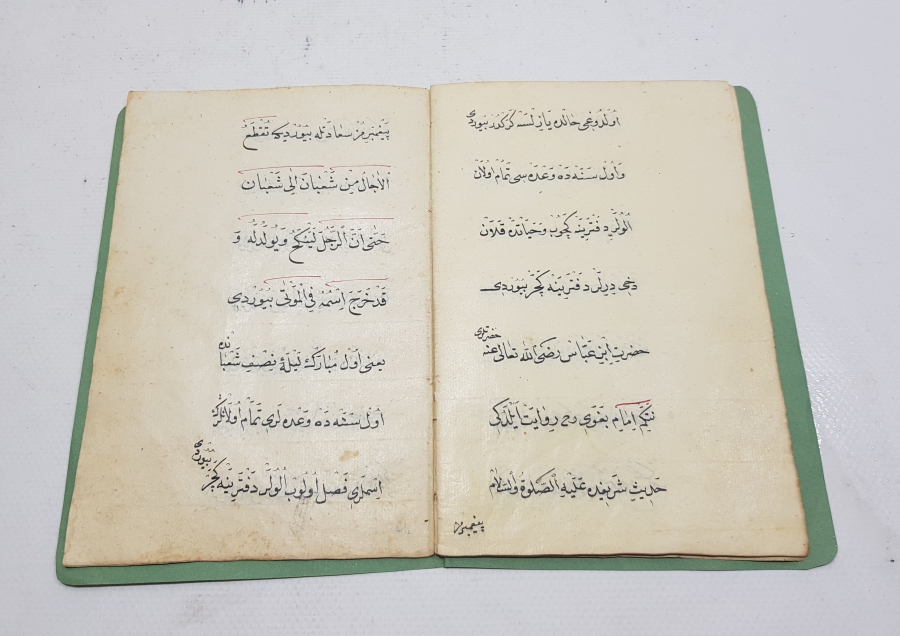 اولدوغی حالده یازلسه کرکدر بیوردی
و اول سنه ده وعده سی تمام اولان
الولر دفترینه کچوب وحیاتده قلان
دخی دیرلر دفترینه کچر بیوردی
حضرت ابن عباس رضی الله تعالی عنه حضرتلری
نتکیم امام بغوی روایت ایلدی کی
حدیث شریفده علیه الصلوة والسلام
پیغمبرمز
پیغمبرمز سعادتله بیوردی که تُقْطَعُ
الآجال من شعبان الی شعبان
حتی انّ الرّجل لینکح ویولد له و
قد خرج اسمه فی الموتی بیوردی
یعنی اول مبارک لیلهٔ نصف شعبانده
اول سنه ده وعده لری تمام اولانلرک
اسملری فصل اولوب الولر دفترینه کچر بیوردی